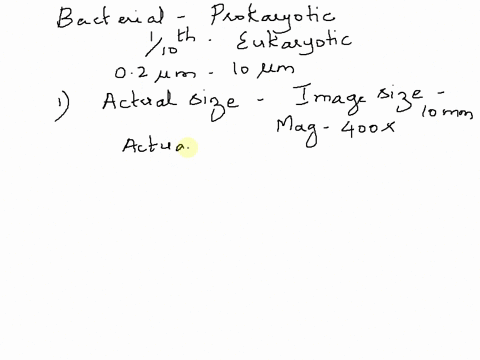 Bacterial - Prokaryotic
1/10th. Eukaryotic
0.2 μm - 10 μm
1) Actual size - Image size - 10 mm
Mag - 400x
Actua